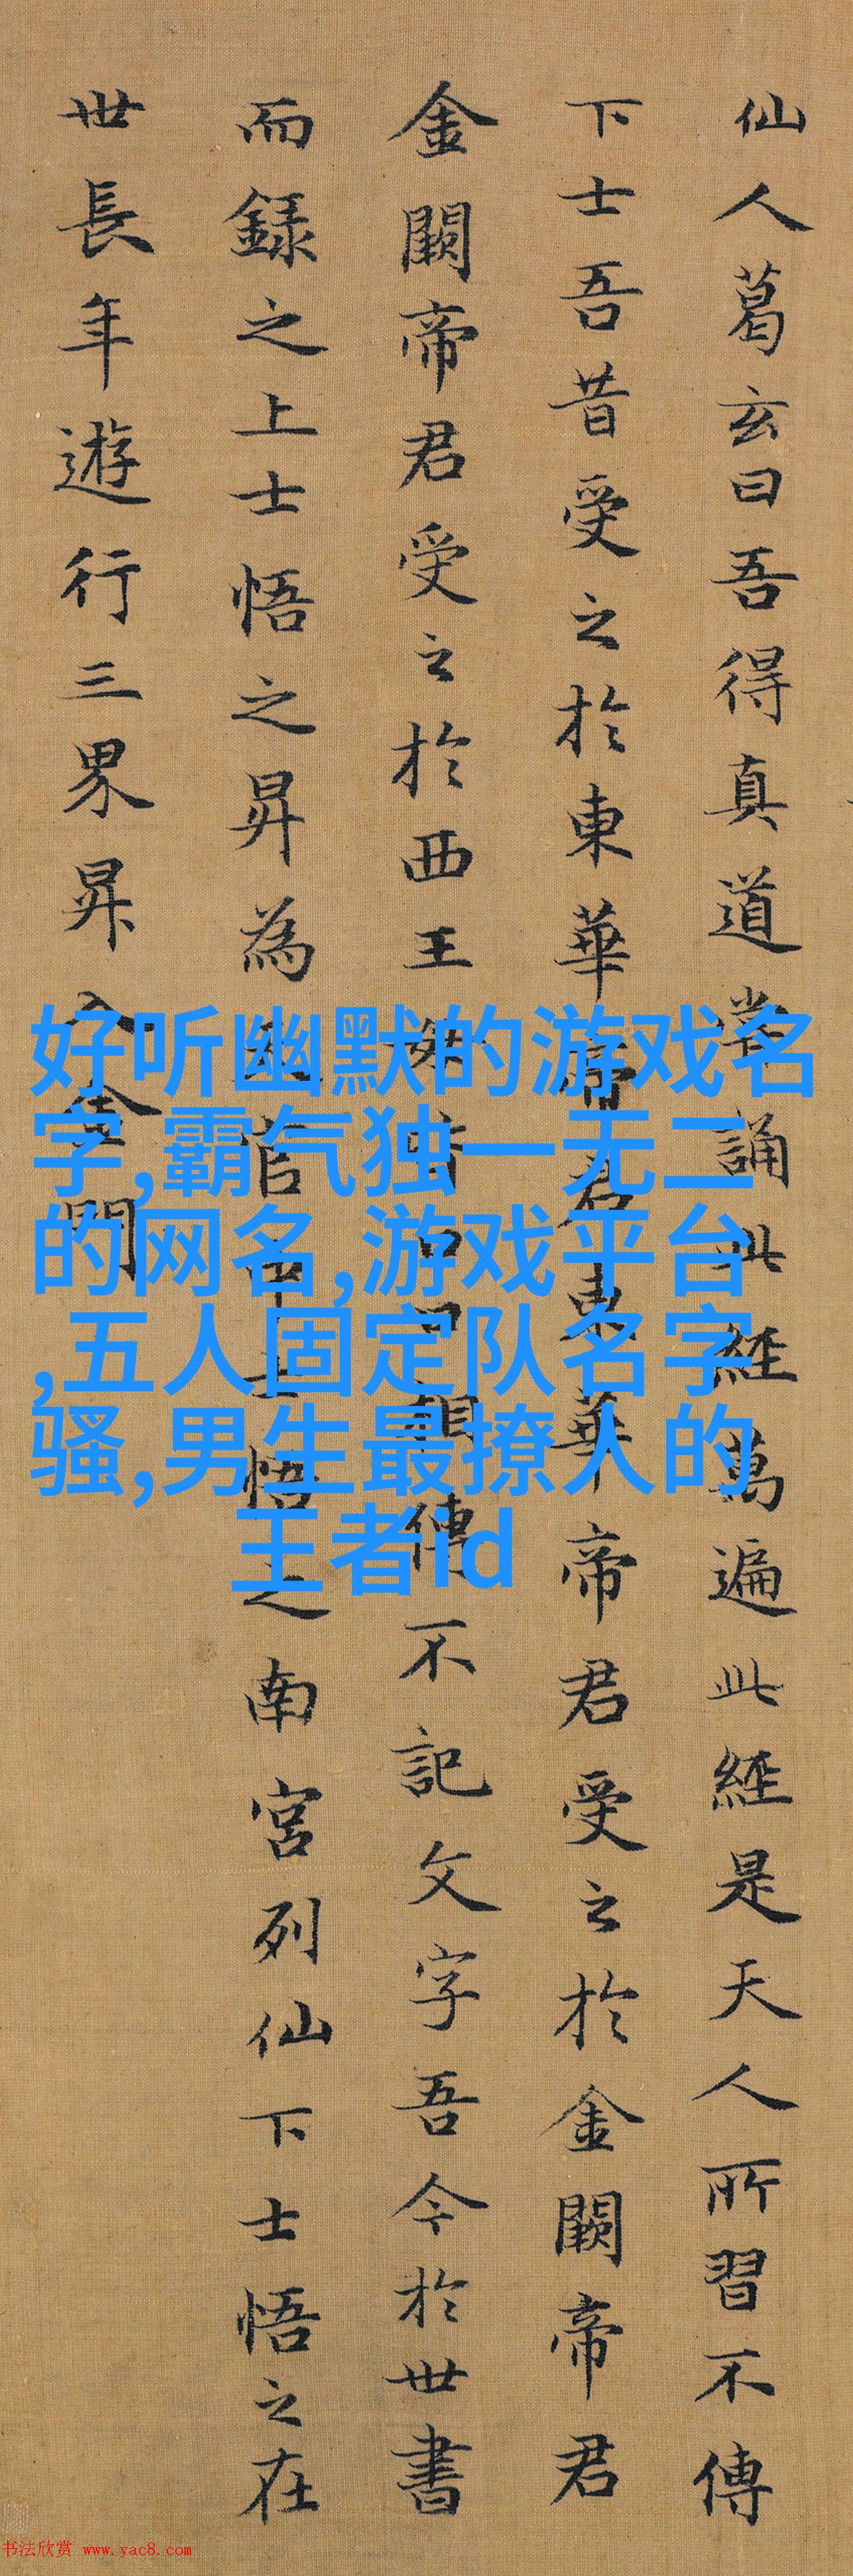 仙人葛玄曰吾得真道常誦此經萬遍此經是天人所習不傳
下士吾昔受之於東華帝君東華帝君受之於金闕帝君
金闕帝君受之於西王母皆口口相傳不記文字吾今於世書
而録之上士悟之昇為天官中士悟之南宮列仙下士悟之在
世長年遊行三界昇入金門
好听幽默的游戏名
字,霸气独一无二
的网名,游戏平台
,五人固定队名字
骚,男生最撩人的
王者id
书法欣赏 www.yac8.com